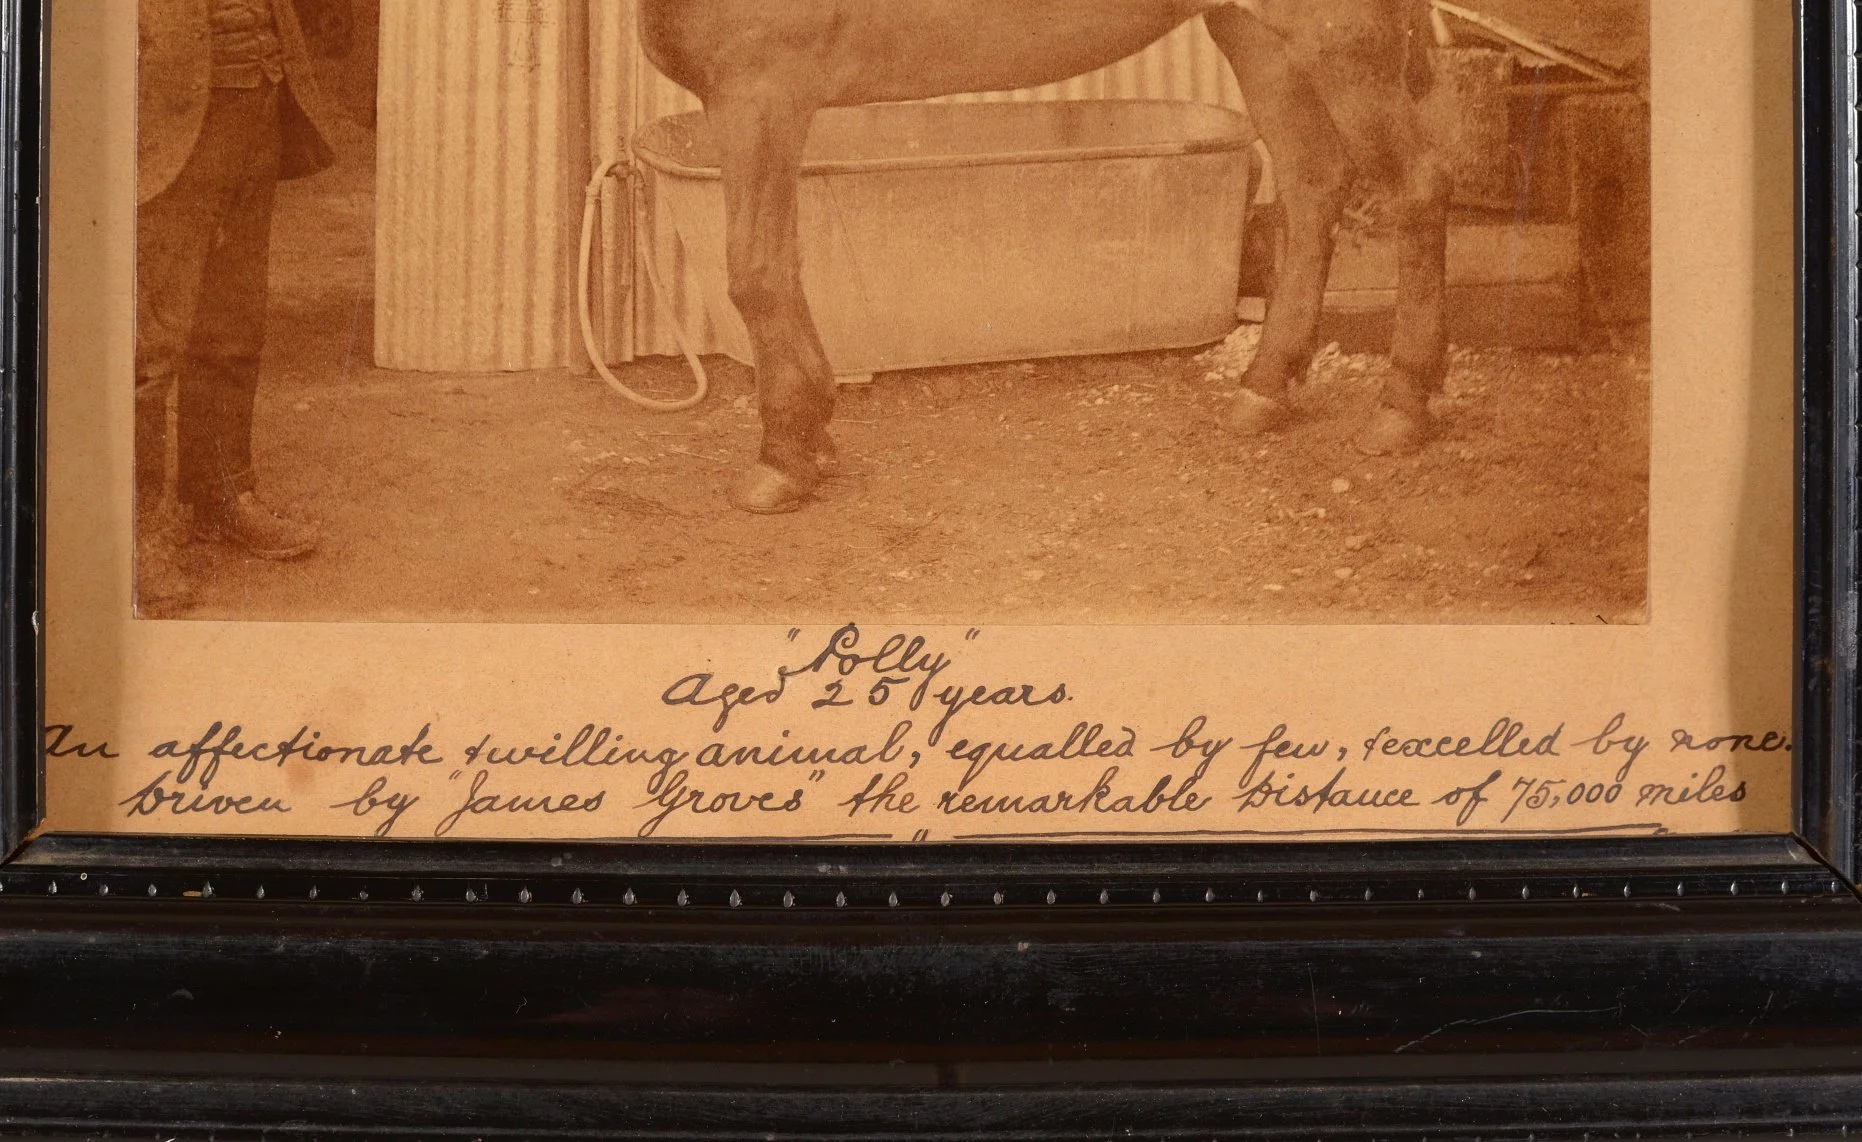 "Polly"
Aged 25 years.
An affectionate & willing animal, equalled by few, & excelled by none.
Driven by "James Groves" the remarkable Distance of 75,000 miles